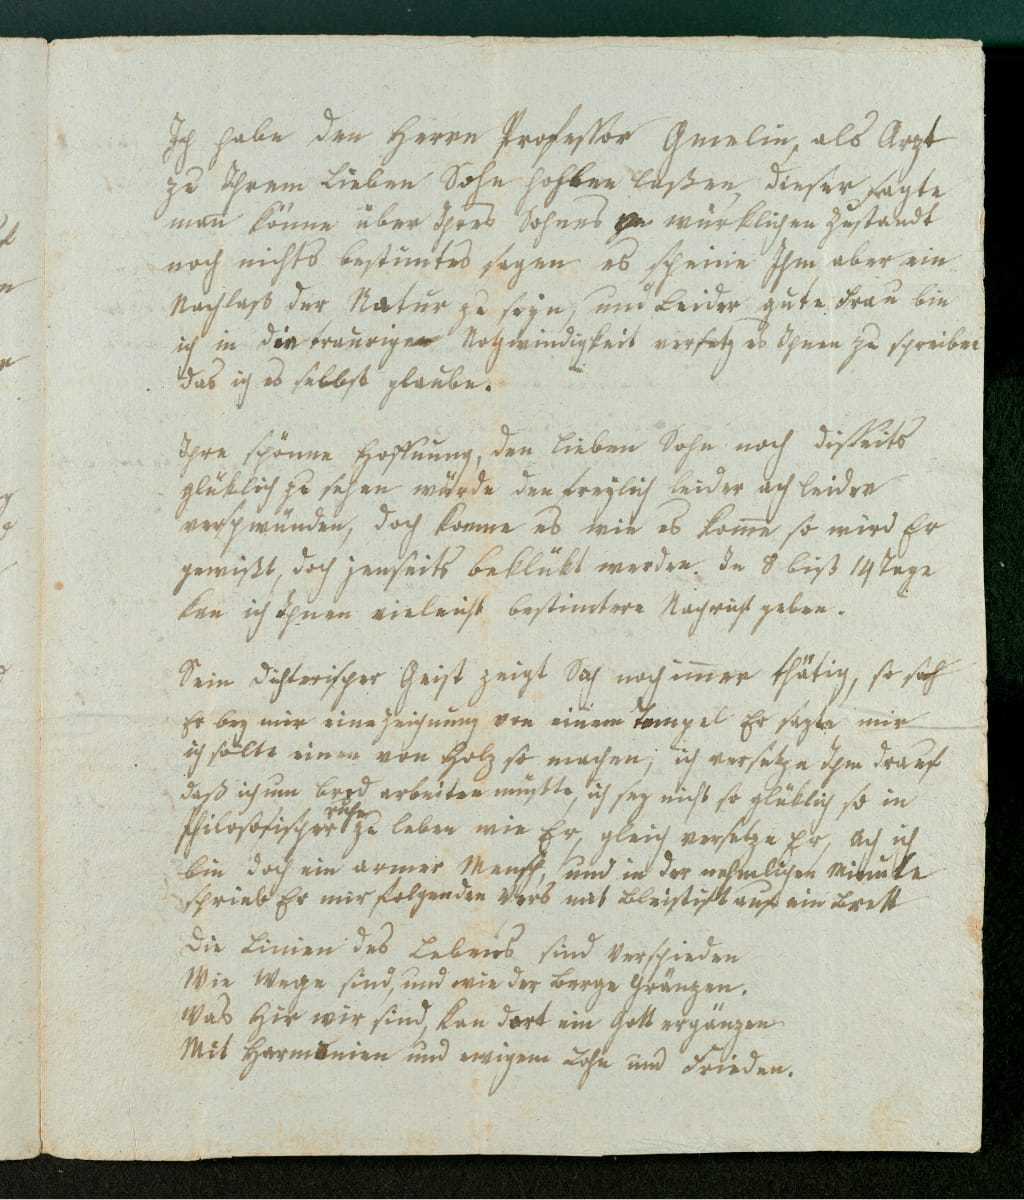 Ich habe den Herrn Professor Gmelin, als Arzt
zu Ihrem Lieben Sohn hohlen laßen, dieser sagte
man könne über Ihres Sohnes würklichen Zustandt
noch nichts bestimtes sagen es scheine Ihm aber ein
Nachlaß der Natur zu seyn, und Leider gute Frau bin
ich in die traurige Nothwindigkeit versetz es Ihnen zu schreiben
das ich es selbst glaube.
Ihre schönne Hoffnung, den Lieben Sohn noch disseits
glüklich zu sehen würde den freylich leider ach leider
verschwünden, doch komme es wie es kome so wird Er
gewißt, doch jenseits beklükt werden. In 8 biß 14 Tage
kan ich Ihnen vieleicht bestimtere Nachricht geben.
Sein dichterischer Geist zeigt Sich noch immer thätig, so sah
Er bey mir eine Zeichnung von einem Tempel Er sagte mir
ich solte einen von Holz so machen, ich versetze Ihm drauf
daß ich um brod arbeiten müßte, ich sey nicht so glüklich so in
Philosofischer ruhe zu leben wie Er, gleich versetze Er, Ach ich
bin doch ein armer Mensch, und in der nehmlichen Minute
schrieb Er mir folgenden Vers mit Bleistift auf ein Brett
Die Linien des Lebens sind Verschieden
Wie Wege sind, und wie der Berge Gränzen.
Was Hir wir sind, kan dort ein Gott ergänzen
Mit Harmonien und ewigem Lohn und Frieden.